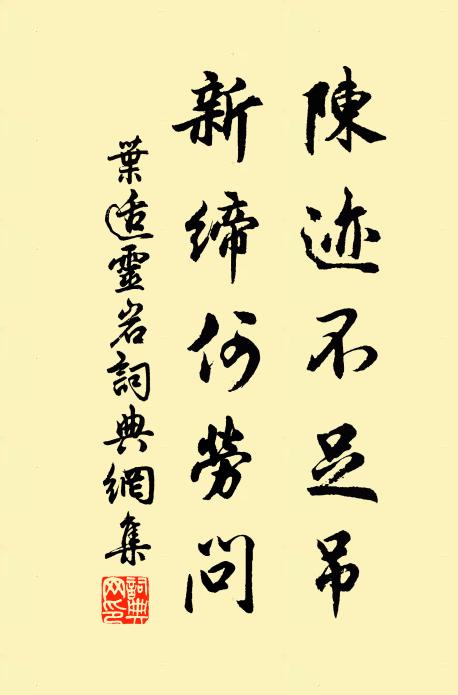 陳迹不足吊
新締何勞問
葉适靈岩詞典網集
詞典网印